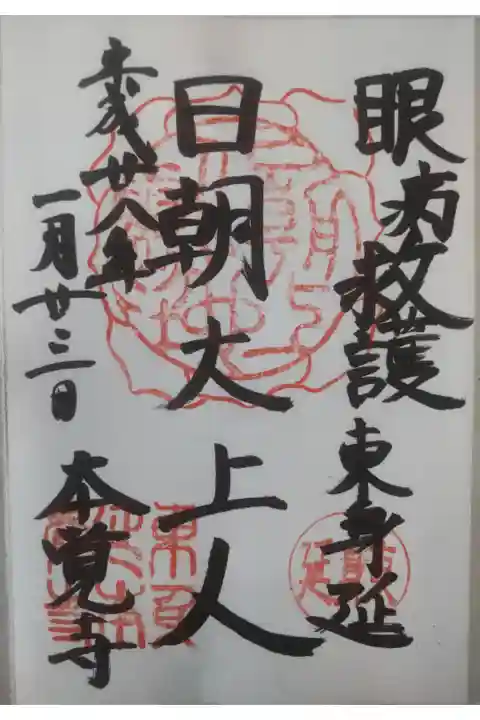 眼病救護 東身延
日朝大上人
平成廿八年
一月廿三日 本覚寺